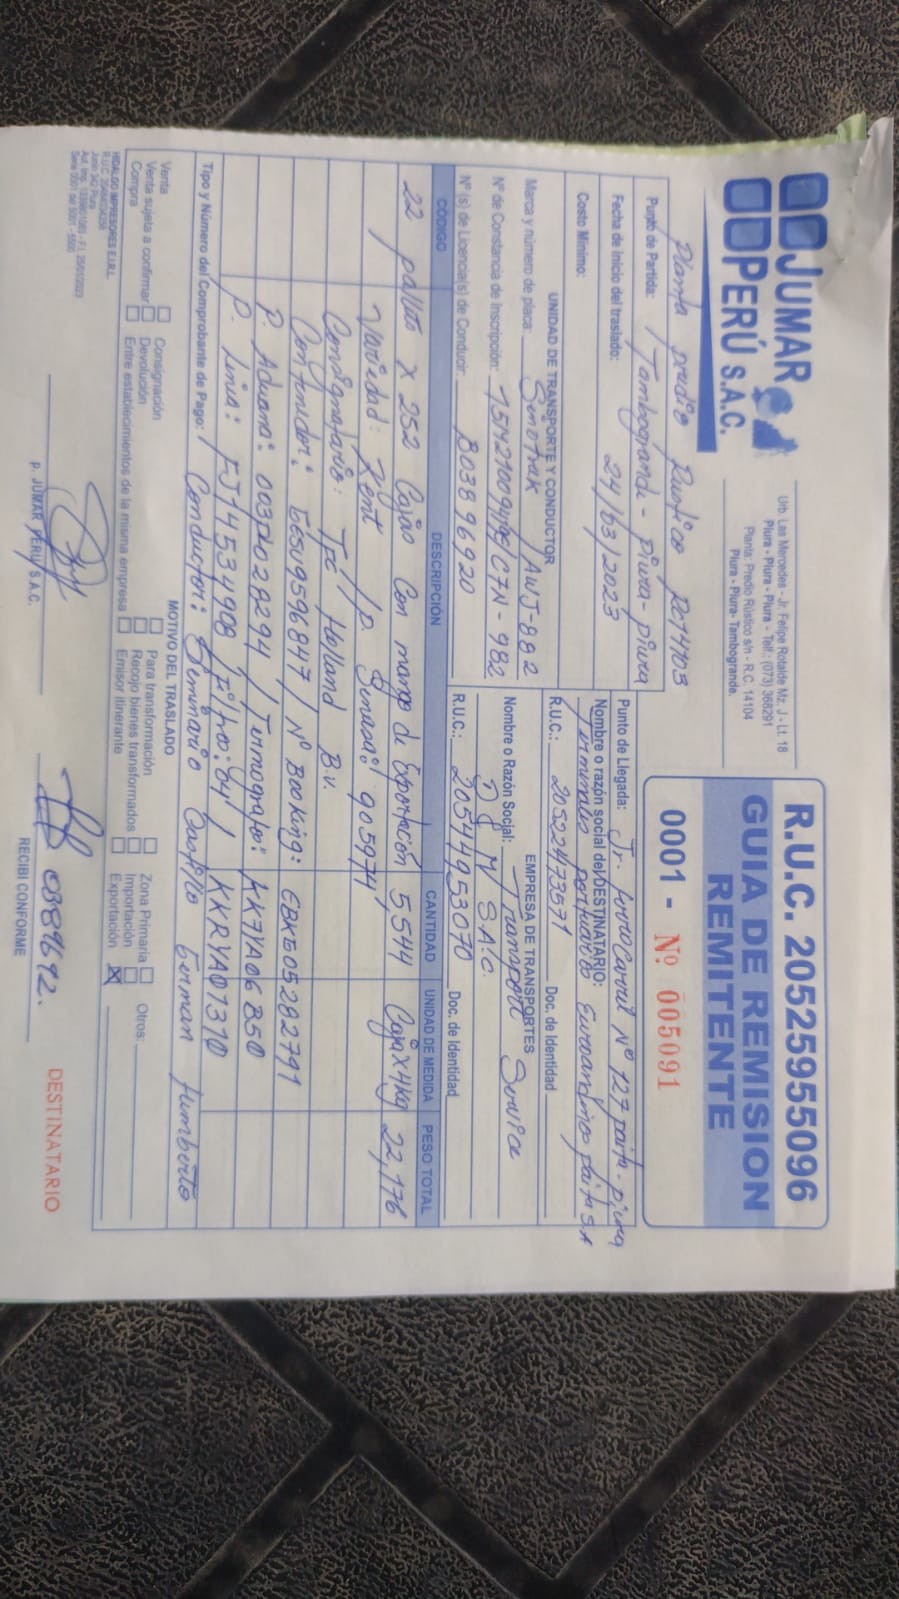 JUMAR
PERÚ S.A.C.
Urb. Las Mercedes - Jr. Felipe Rotalde Mz. J - Lt. 18
Piura - Piura - Piura - Telf.: (073) 368291
Planta: Predio Rústico s/n - R.C. 14104
Piura - Piura- Tambogrande.
R.U.C. 20525955096
GUIA DE REMISION
REMITENTE
0001 - Nº 005091
Planta predio Rustico Rc14103
Punto de Partida: / Tambogrande - piura - piura
Fecha de inicio del traslado: 24/03/2023
Costo Minimo:
Punto de Llegada: Jr. ferroCarril Nº 127 paita - piura
Nombre o razón social del DESTINATARIO:
Terminales portuarios Euroandinos paita S.A
R.U.C.: 20522473571 Doc. de Identidad
UNIDAD DE TRANSPORTE Y CONDUCTOR
Marca y número de placa: Sinotrak / AWJ-882
Nº de Constancia de Inscripción: 151421009 C7N-982
Nº(s) de Licencia(s) de Conducir: B03896920
EMPRESA DE TRANSPORTES
Nombre o Razón Social: Transport Service
M S.A.C.
R.U.C.: 20544953070 Doc. de Identidad
CÓDIGO DESCRIPCIÓN CANTIDAD UNIDAD DE MEDIDA PESO TOTAL
22 pallets x 252 Cajas Con mango de Exportación 5,544 Caja x 4kg 22,176
/ Variedad: Kent / p. Senasa: 905974
Consignatario: Holland B.V.
Contenedor: 9596847 / Nº Booking: EBKG05282791
P. Aduana: 003040 / Termografo: KK7YA06B50
P. Linea: FJ14534908 filtro: 04 / KKRYA01310
Tipo y Número del Comprobante de Pago: / Conductor: Seminario Castillo German Humberto
MOTIVO DEL TRASLADO
Venta
Venta sujeta a confirmar
Compra
Consignación
Devolución
Entre establecimientos de la misma empresa
Para transformación
Recojo bienes transformados
Emisor itinerante
Zona Primaria
Importación
Exportación X
Otros:
HIDALGO IMPRESORES E.I.R.L.
Junín 342 Piura
Serie 0001 del 5001 - 5500
p. JUMAR PERU S.A.C.
0389692.
RECIBI CONFORME
DESTINATARIO